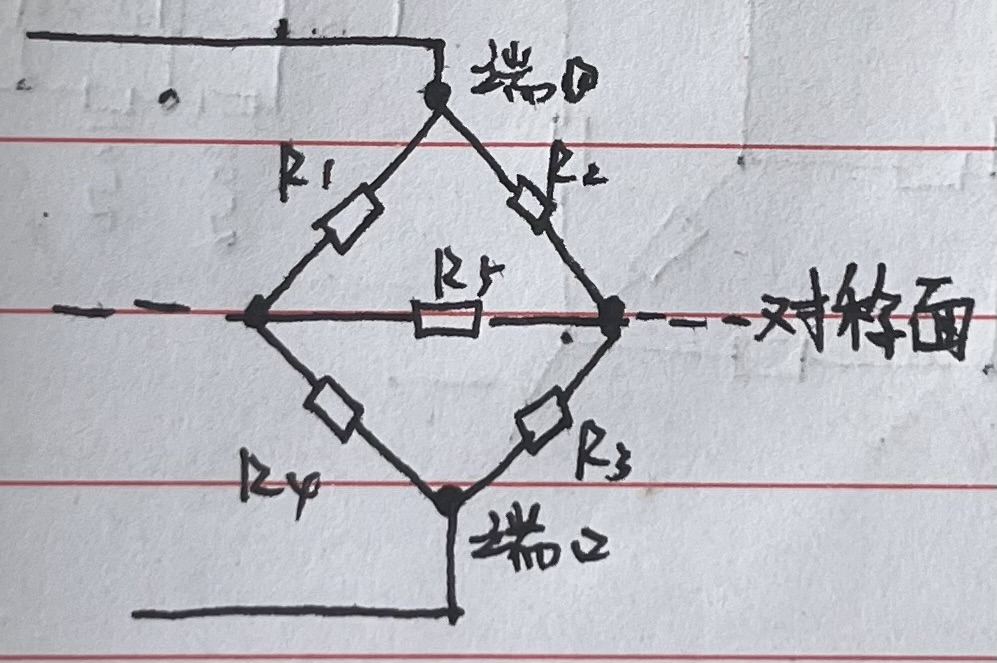 端口
R1
R2
R5
对称面
R4
R3
端口